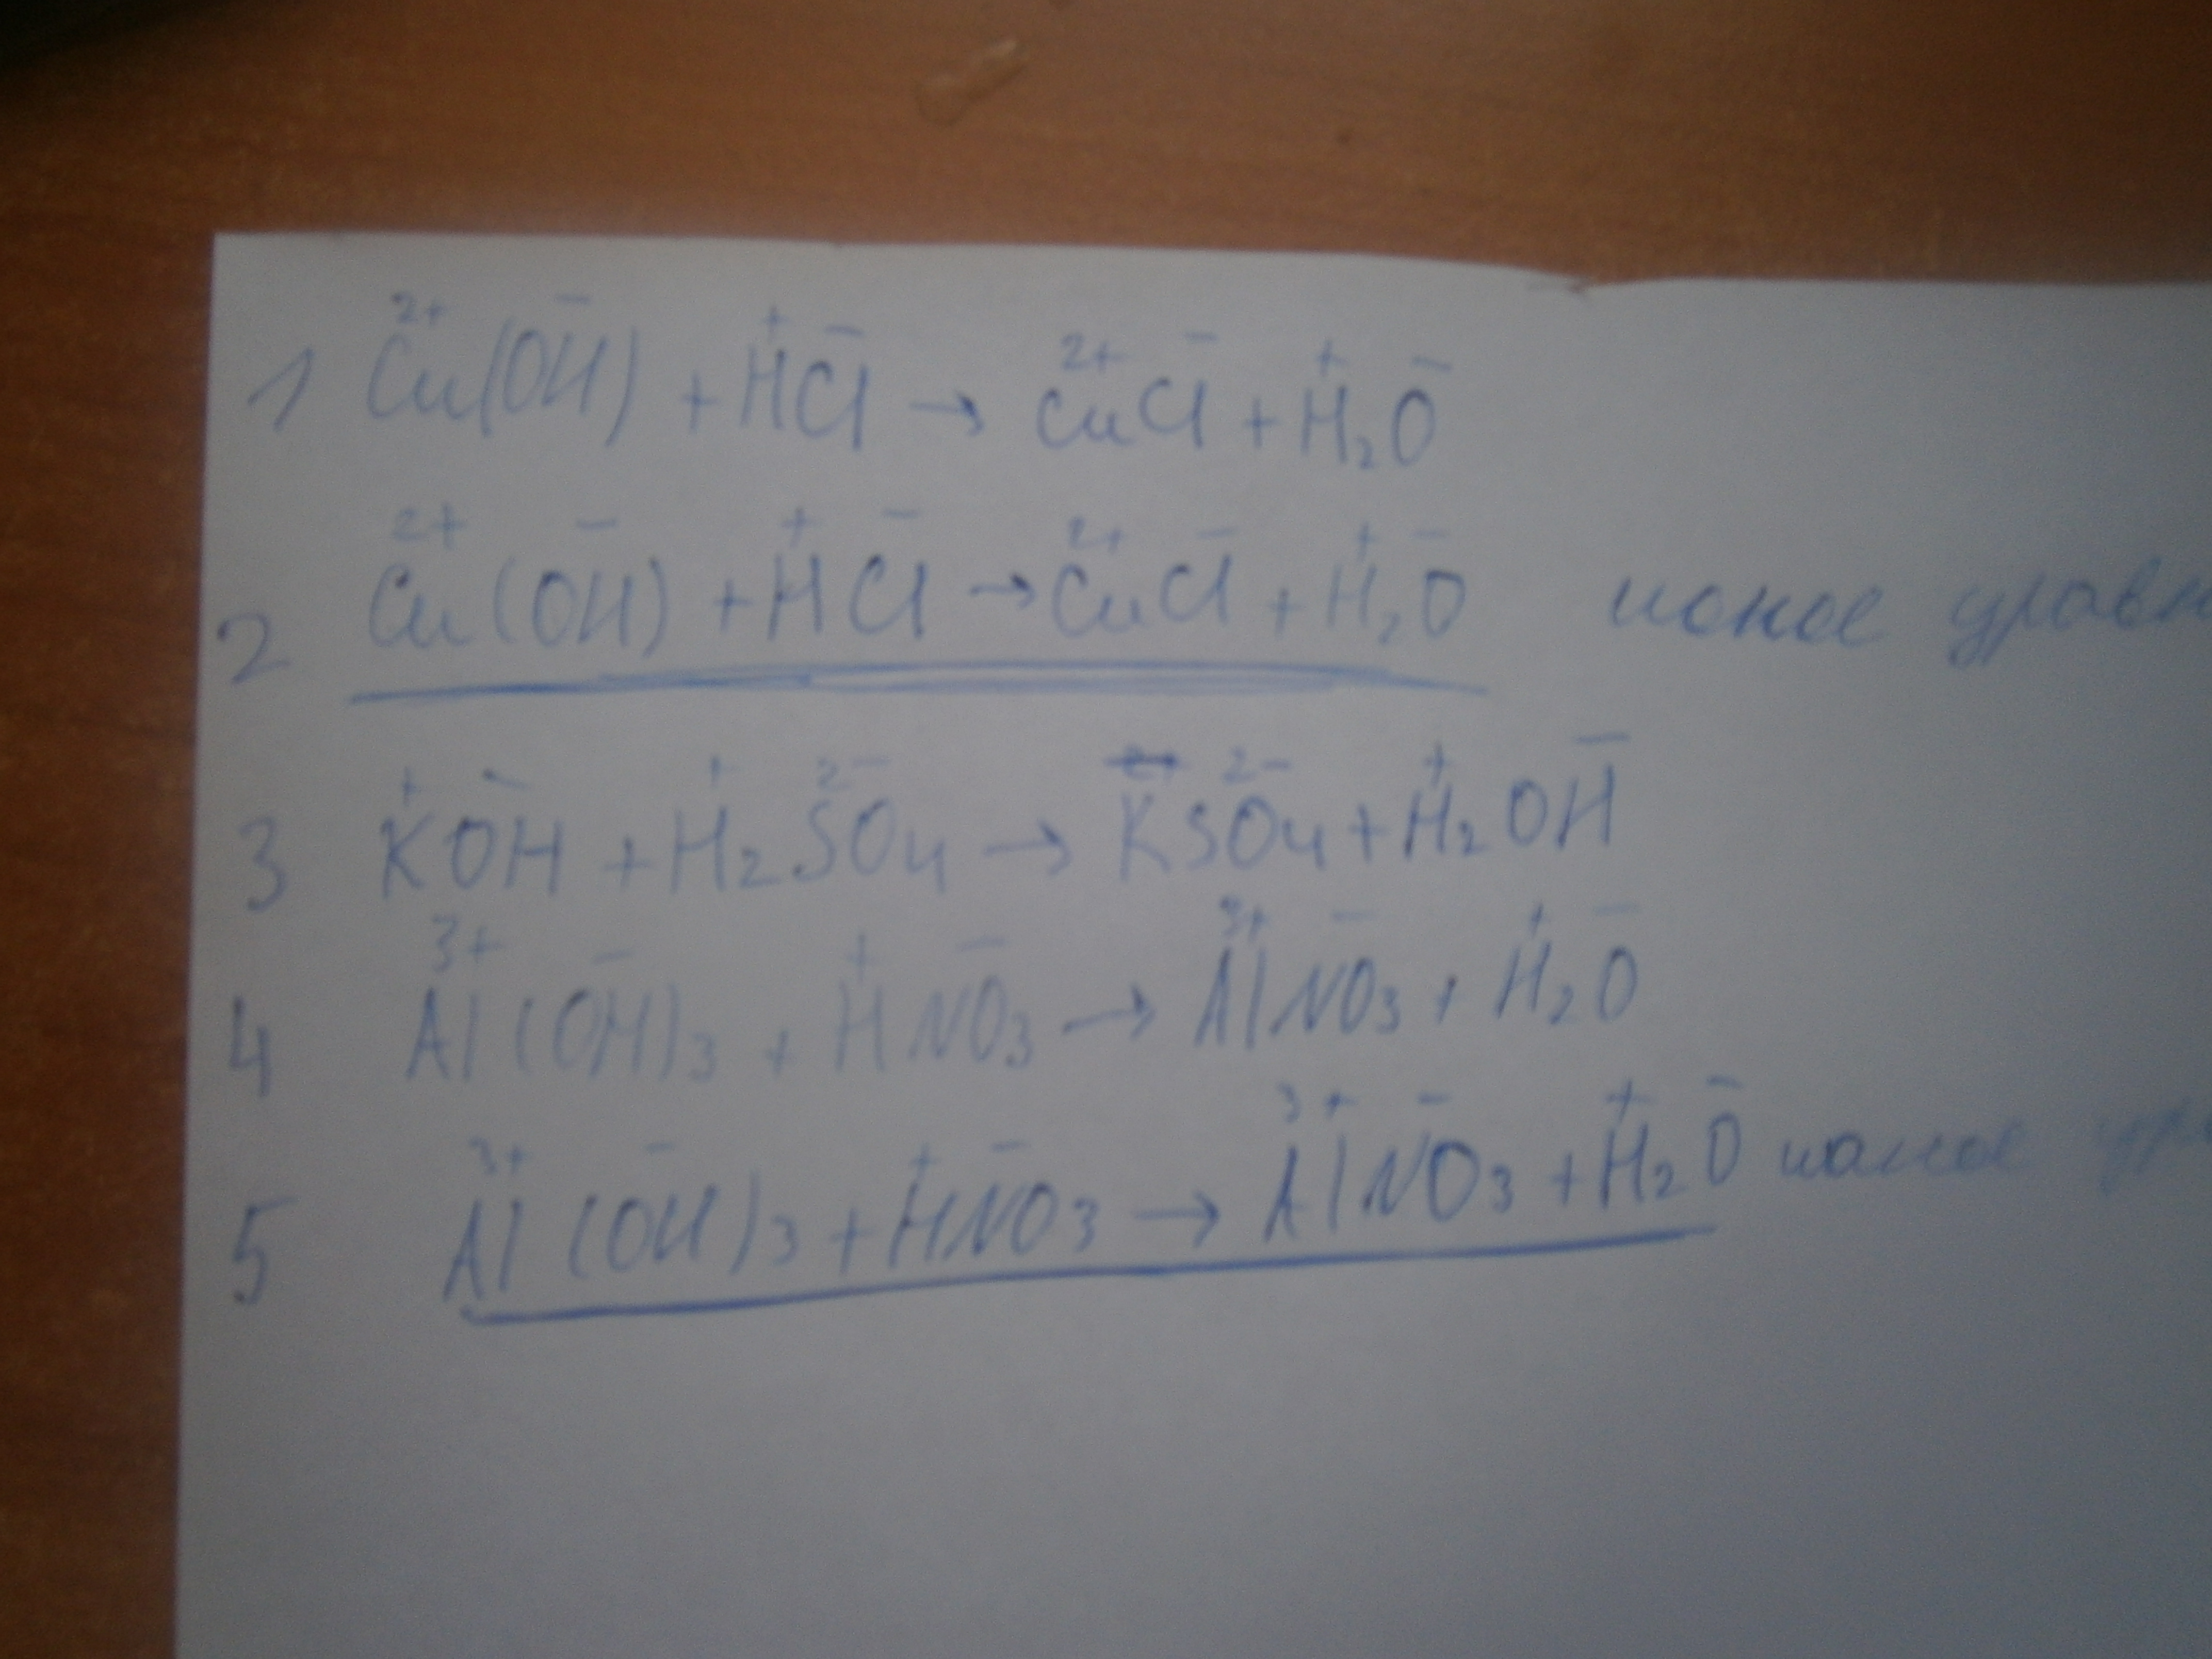 1 Cu²⁺(OH)⁻ + H⁺Cl⁻ → Cu²⁺Cl⁻ + H₂⁺O⁻
2 Cu²⁺(OH)⁻ + H⁺Cl⁻ → Cu²⁺Cl⁻ + H₂⁺O⁻ ионое уравн
3 K⁺OH⁻ + H₂⁺SO₄²⁻ → KSO₄²⁻ + H₂⁺OH⁻
4 Al³⁺(OH)₃⁻ + H⁺NO₃⁻ → Al³⁺NO₃⁻ + H₂⁺O⁻
5 Al³⁺(OH)₃⁻ + H⁺NO₃⁻ → Al³⁺NO₃⁻ + H₂⁺O⁻ ионое